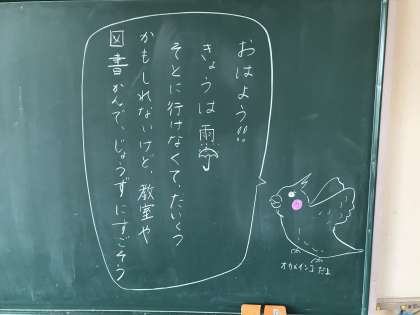 おはよう!!
きょうは雨
そとに行けなくて、たいくつ
かもしれないけど、教室や
図書かんで、じょうずにすごそう
オカメインコだよ